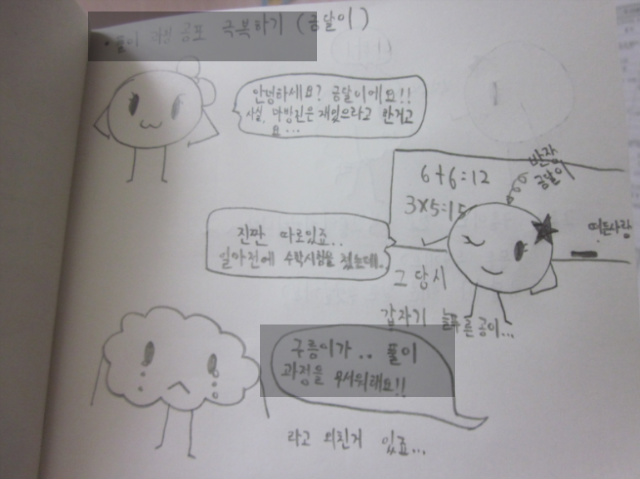 • 풀이 과정 공포 극복하기 (공달이)
안녕하세요? 공달이에요!!
사실, 마당인은 재밌으라고 한거고
요...
6+6=12
3×5=15
반장
공달이
떠든사람
진짠 따로있죠..
얼마전에 수학시험을 쳤는데..
그 당시
갑자기 늘푸른공이...
구름이가.. 풀이
과정을 무서워해요!!
라고 외친거 있죠...